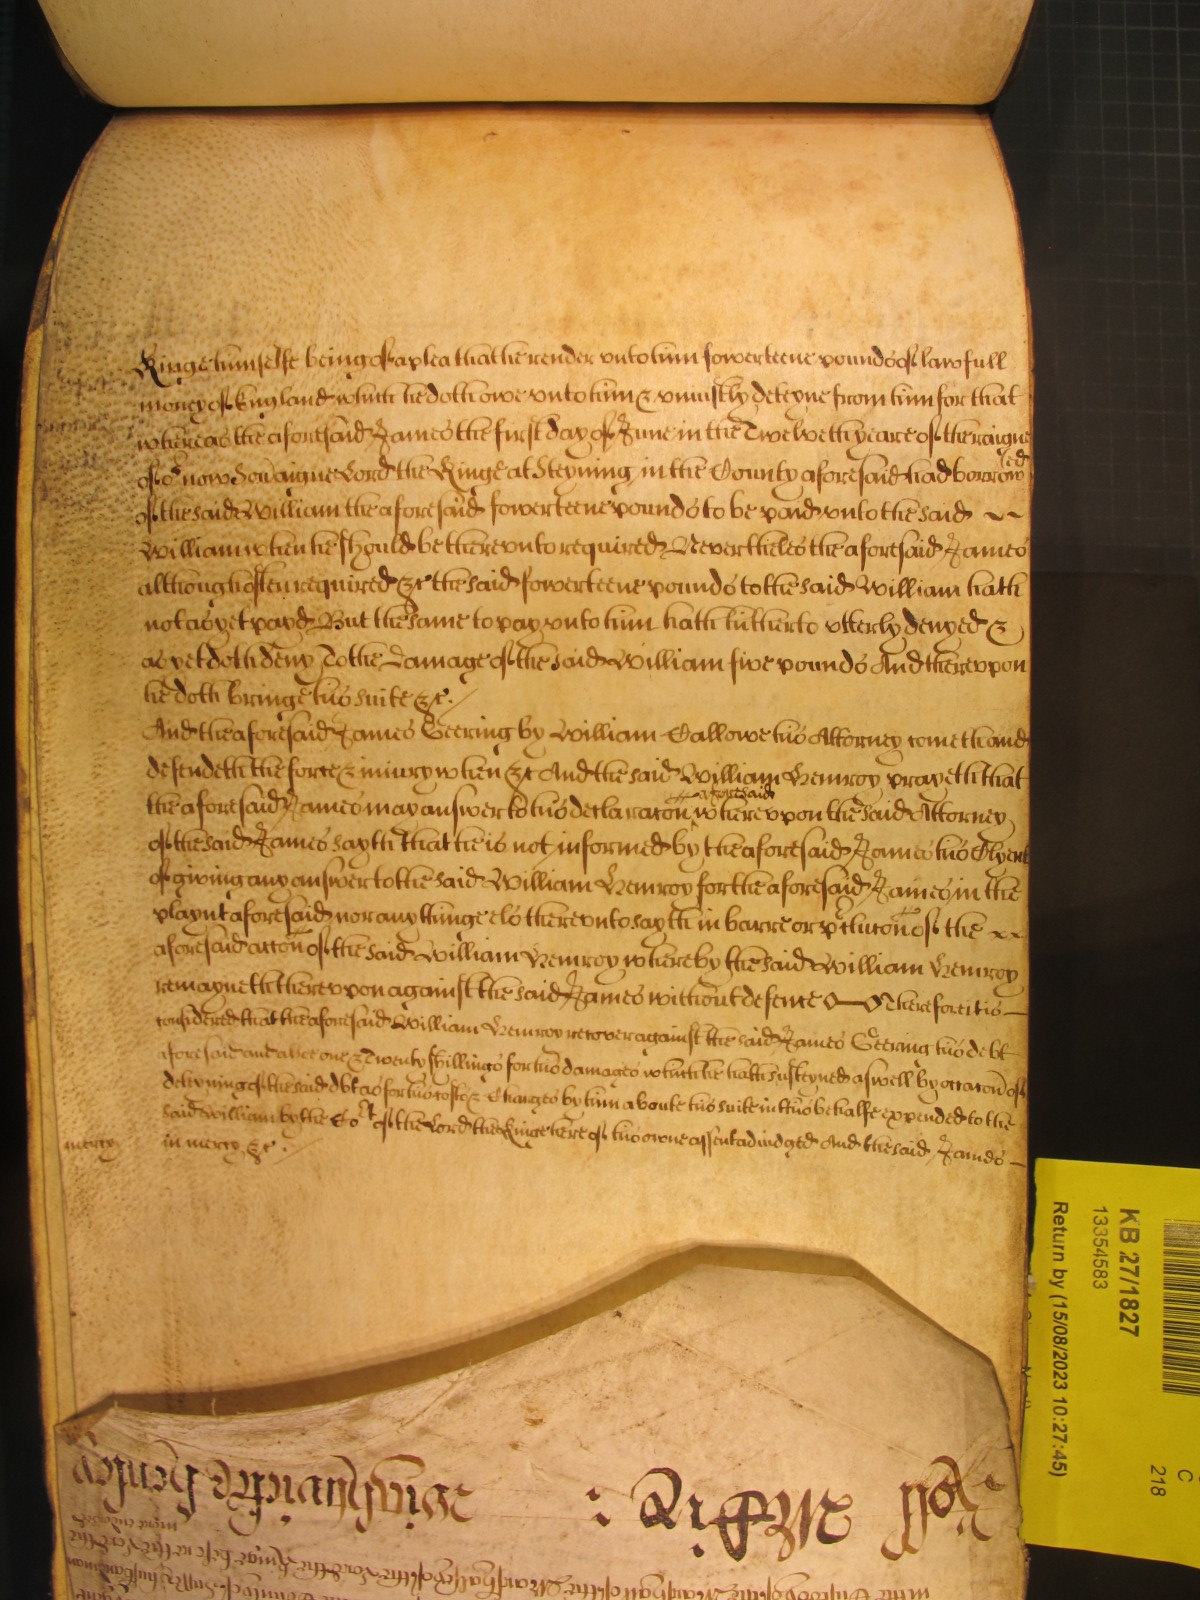 Kinge himselfe being of a plea that he render unto him fowerteene pounds of lawfull
money of England which he doth owe unto him & uniustly deteyne from him for that
whereas the aforesaid James the first day of June in the Twelveth yeare of the raigne
of or now Soveraigne Lord the Kinge at Steyning in the County aforesaid had borrowed
of the said William the aforesaid fowerteene pounds to be paid unto the said
William when he should be thereunto required Nevertheles the aforesaid James
although often required &c the said fowerteene pounds to the said William hath
not as yet payd But the same to pay unto him hath hitherto utterly denyed &
as yet doth deny To the Damage of the said William five pounds And thereupon
he doth bringe his suite &c.
And the aforesaid James Geering by William Callowe his Attorney cometh and
defendeth the force & iniury when &c And the said William Gemroy prayeth that
the aforesaid James may answer to his declaracon aforesaid whereupon the said Attorney
of the said James sayth that he is not informed by the aforesaid James his Clyent
of giving any answer to the said William Gemroy for the aforesaid James in the
playnt aforesaid nor any thinge els thereunto sayth in barre or preclucon of the
aforesaid accon of the said William Gemroy whereby the said William Gemroy
remayneth thereupon against the said James without defence Therefore it is
considered that the aforesaid William Gemroy recover against the said James Geering his debt
aforesaid and alsoe one & Twenty shillings for his damages which he hath susteyned aswell by occacon of
deteyning of the said debt as for his costs & Charges by him aboute his suite in this behalfe expended to the
said William by the Cort of the Lord the Kinge here of his owne assent adiudged And the said James
mercy
in mercy &c.
KB 27/1827
13354583
Return by (15/08/2023 10:27:45)
C
218